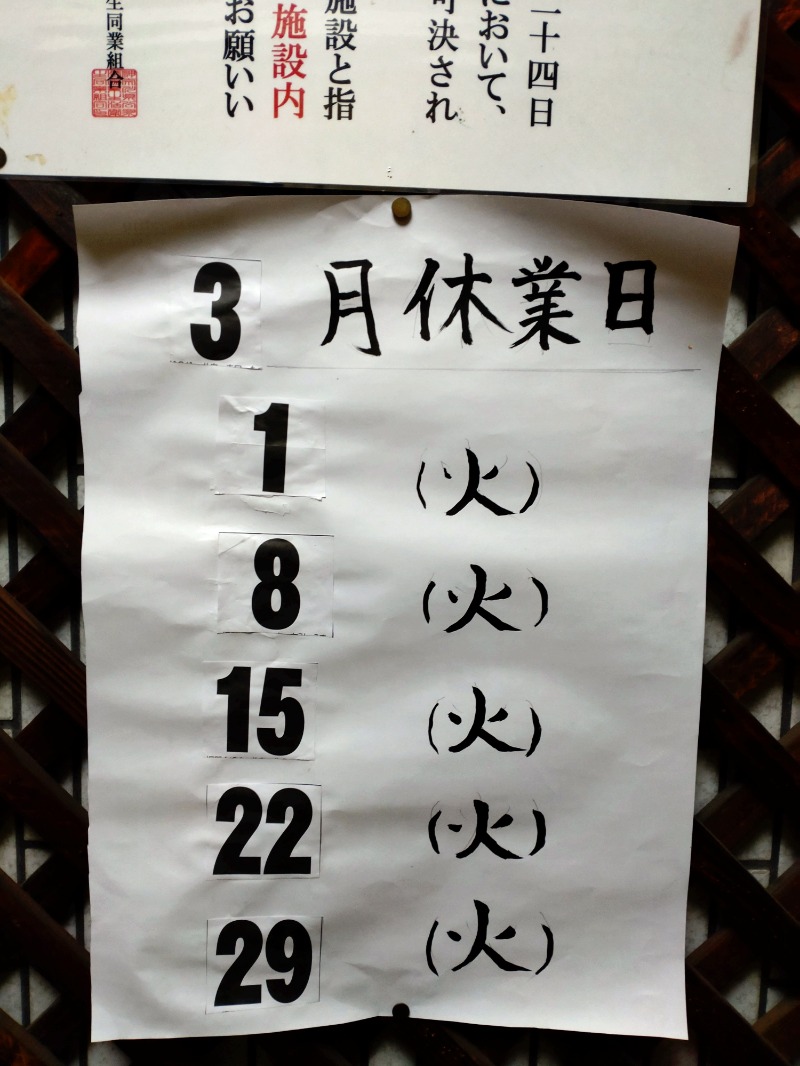 二十四日
において、
可決され
施設と指
施設内
お願いい
生同業組合
3月休業日
1（火）
8（火）
15（火）
22（火）
29（火）